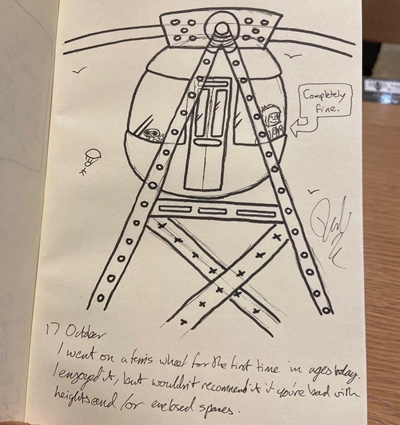 Completely
fine.
17 October
I went on a ferris wheel for the first time in ages today.
I enjoyed it, but wouldn't recommend it if you're bad with
heights and/or enclosed spaces.